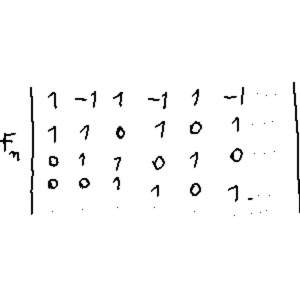 1 -1 1 -1 1 -1 ...
F_n 1 1 0 1 0 1 ...
0 1 1 0 1 0 ...
0 0 1 1 0 1 ...
. . . . . . ...